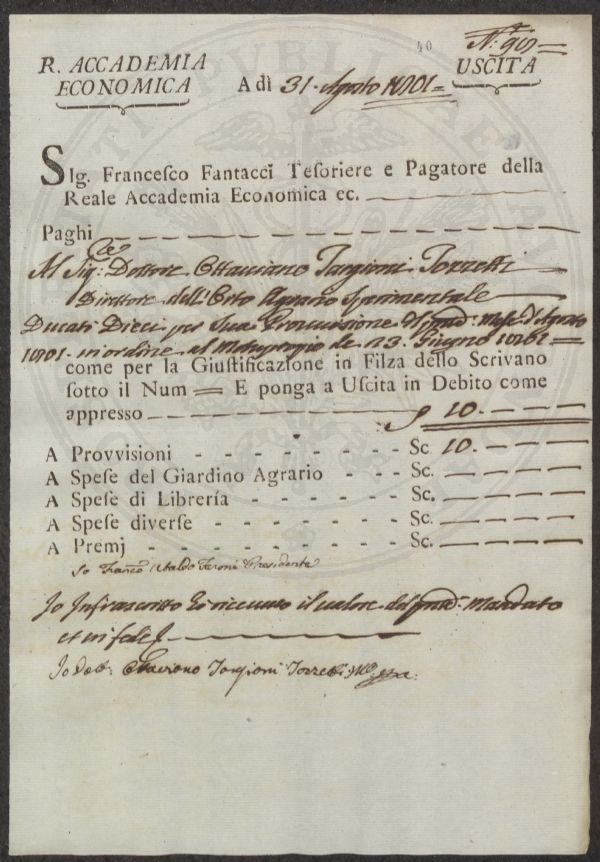 40
N.° 90=
R. ACCADEMIA
ECONOMICA
A dì 31. Agosto 1801=
USCITA
SIg. Francesco Fantacci Tesoriere e Pagatore della
Reale Accademia Economica ec.
Paghi
Al Sig: Dottore Ottaviano Targioni Tozzetti
Direttore dell'Orto Agrario Sperimentale
Ducati Dieci per Sua Provvisione del Mese d'Agosto
1801. in ordine al Motuproprio de 23. Giugno 1801=
come per la Giustificazione in Filza dello Scrivano
sotto il Num = E ponga a Uscita in Debito come
appresso 10.
A Provvisioni - - - - - - - - Sc. 10.
A Spese del Giardino Agrario - - - Sc.
A Spese di Librerìa - - - - - - Sc.
A Spese diverse - - - - - - - - Sc.
A Premj - - - - - - - - - Sc.
Io Franco Ubaldo Feroni Presidente
Io Infrascritto hò ricevuto il valore del Mandato
et in fede
Io Dott: Ottaviano Targioni Tozzetti